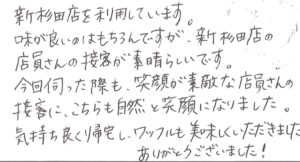 新杉田店を利用しています。
味が良いのはもちろんですが、新杉田店の
店員さんの接客が素晴らしいです。
今回伺った際も、笑顔が素敵な店員さんの
接客に、こちらも自然と笑顔になりました。
気持ち良く帰宅し、ワッフルも美味しくいただきました
ありがとうございました!